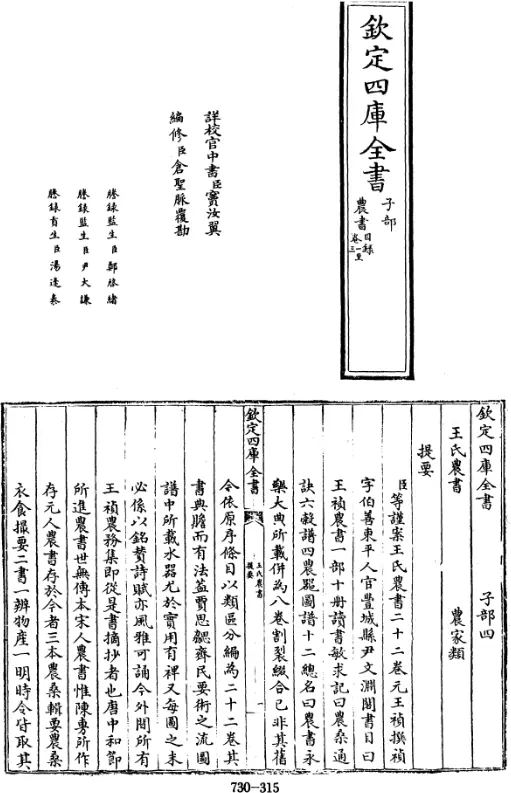 欽定四庫全書
子部
農書
目錄
卷一至
三
詳校官中書臣竇汝翼
編修臣倉聖脈覆勘
謄錄監生臣鄭
謄錄監生臣尹大謙
謄錄貢生臣湯逢泰
欽定四庫全書
子部四
王氏農書
農家類
提要
臣等謹案王氏農書二十二卷元王禎撰禎
字伯善東平人官豐城縣尹文淵閣書目曰
王禎農書一部十册讀書敏求記曰農桑通
訣六穀譜四農噐圖譜十二總名曰農書永
樂大典所載併為八卷割裂綴合已非其舊
欽定四庫全書
王氏農書
提要
今依原序條目以類區分編為二十二卷其
書典贍而有法葢賈思勰齊民要術之流圖
譜中所載水器尤於實用有裨又每圖之末
必係以銘贊詩賦亦風雅可誦今外間所有
王禎農務集即從是書摘抄者也唐中和節
所進農書世無傳本宋人農書惟陳旉所作
存元人農書存於今者三本農桑輯要農桑
衣食撮要二書一辨物産一明時令皆取其
730-315